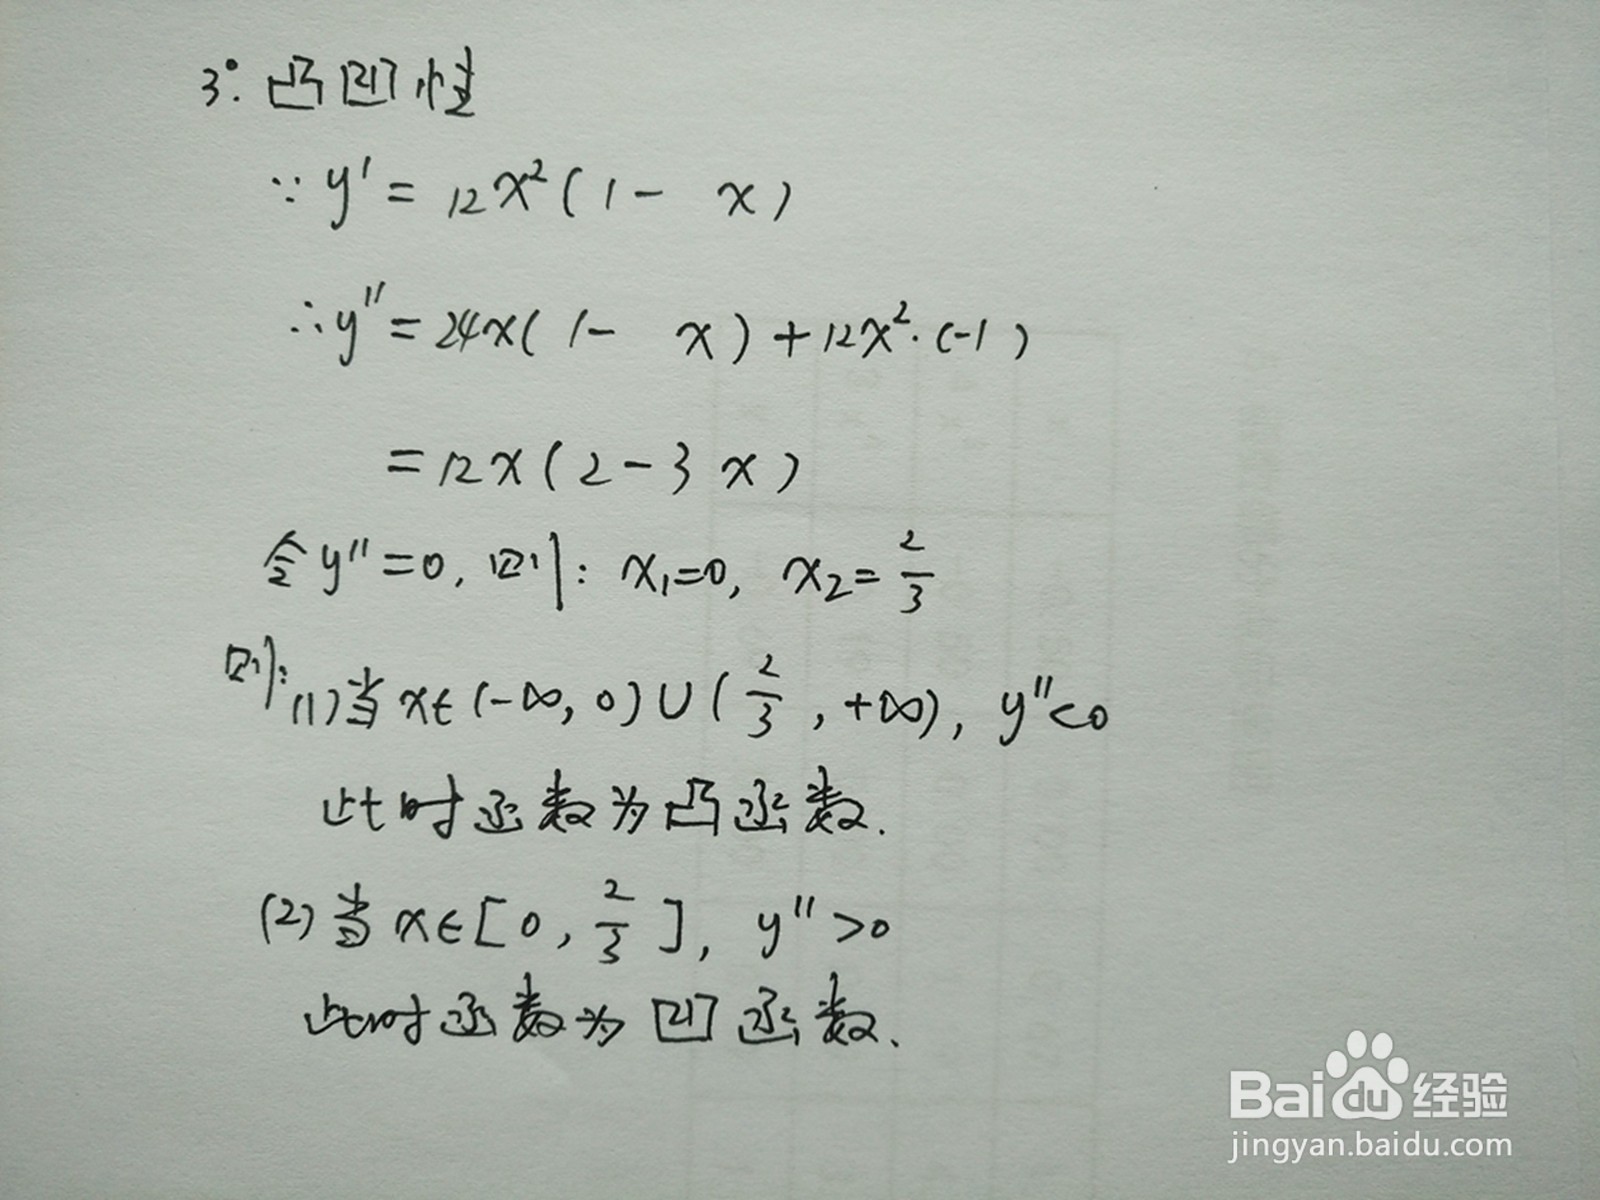 3°. 凸凹性
∵ y' = 12x²(1 - x)
∴ y'' = 24x(1 - x) + 12x²·(-1)
= 12x(2 - 3x)
令y''=0, 则: x₁=0, x₂=2/3
则: (1)当x∈(-∞, 0)∪(2/3, +∞), y''<0
此时函数为凸函数.
(2)当x∈[0, 2/3], y''>0
此时函数为凹函数.
Baidu 经验
jingyan.baidu.com